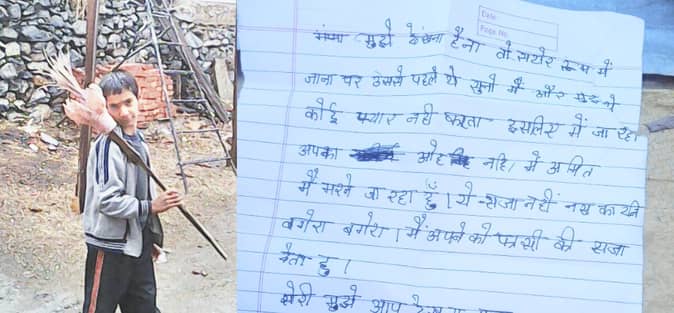 Date
Page No.
मुझे देखना है ना तो स्टोर रूम में
जाना पर उससे पहले ये सुनो मैं और मुझ से
कोई प्यार नहीं करता इसलिए में जा रहा
अपका और नहि। में अमित
मैं मरने जा रहा हूँ। ये सजा नहीं
वगेरा बगेरा। मैं अपने को फासी की सजा
देता हु।
सोरी मुझे आप